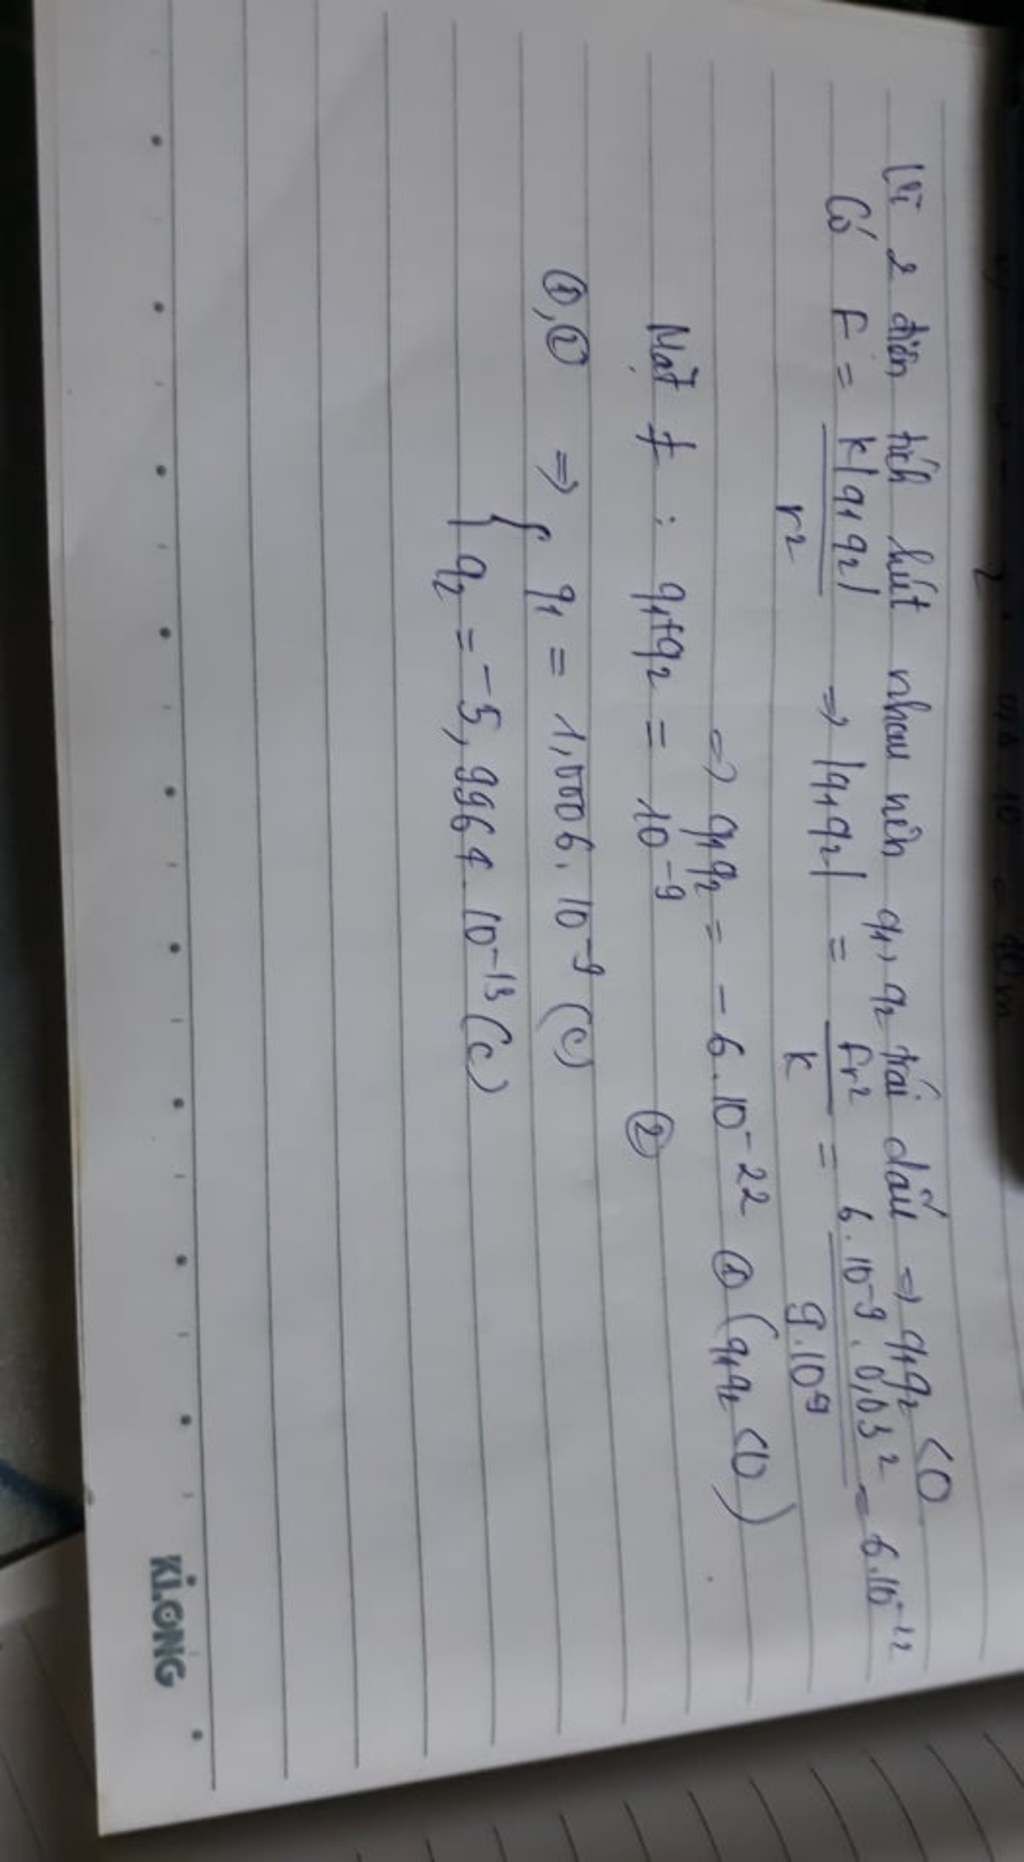 Vì 2 điện tích hút nhau nên q1, q2 trái dấu => q1q2 <0
Có F = k|q1q2| / r² => |q1q2| = Fr² / k = 6.10⁻⁹.0,03² / 9.10⁹ = 6.10⁻²²
=> q1q2 = -6.10⁻²² ① (q1q2 <0)
Mặt ≠ : q1+q2 = 10⁻⁹ ②
①,② => { q1 = 1,0006.10⁻⁹ (C)
q2 = -5,9964.10⁻¹³ (C)
KLONG